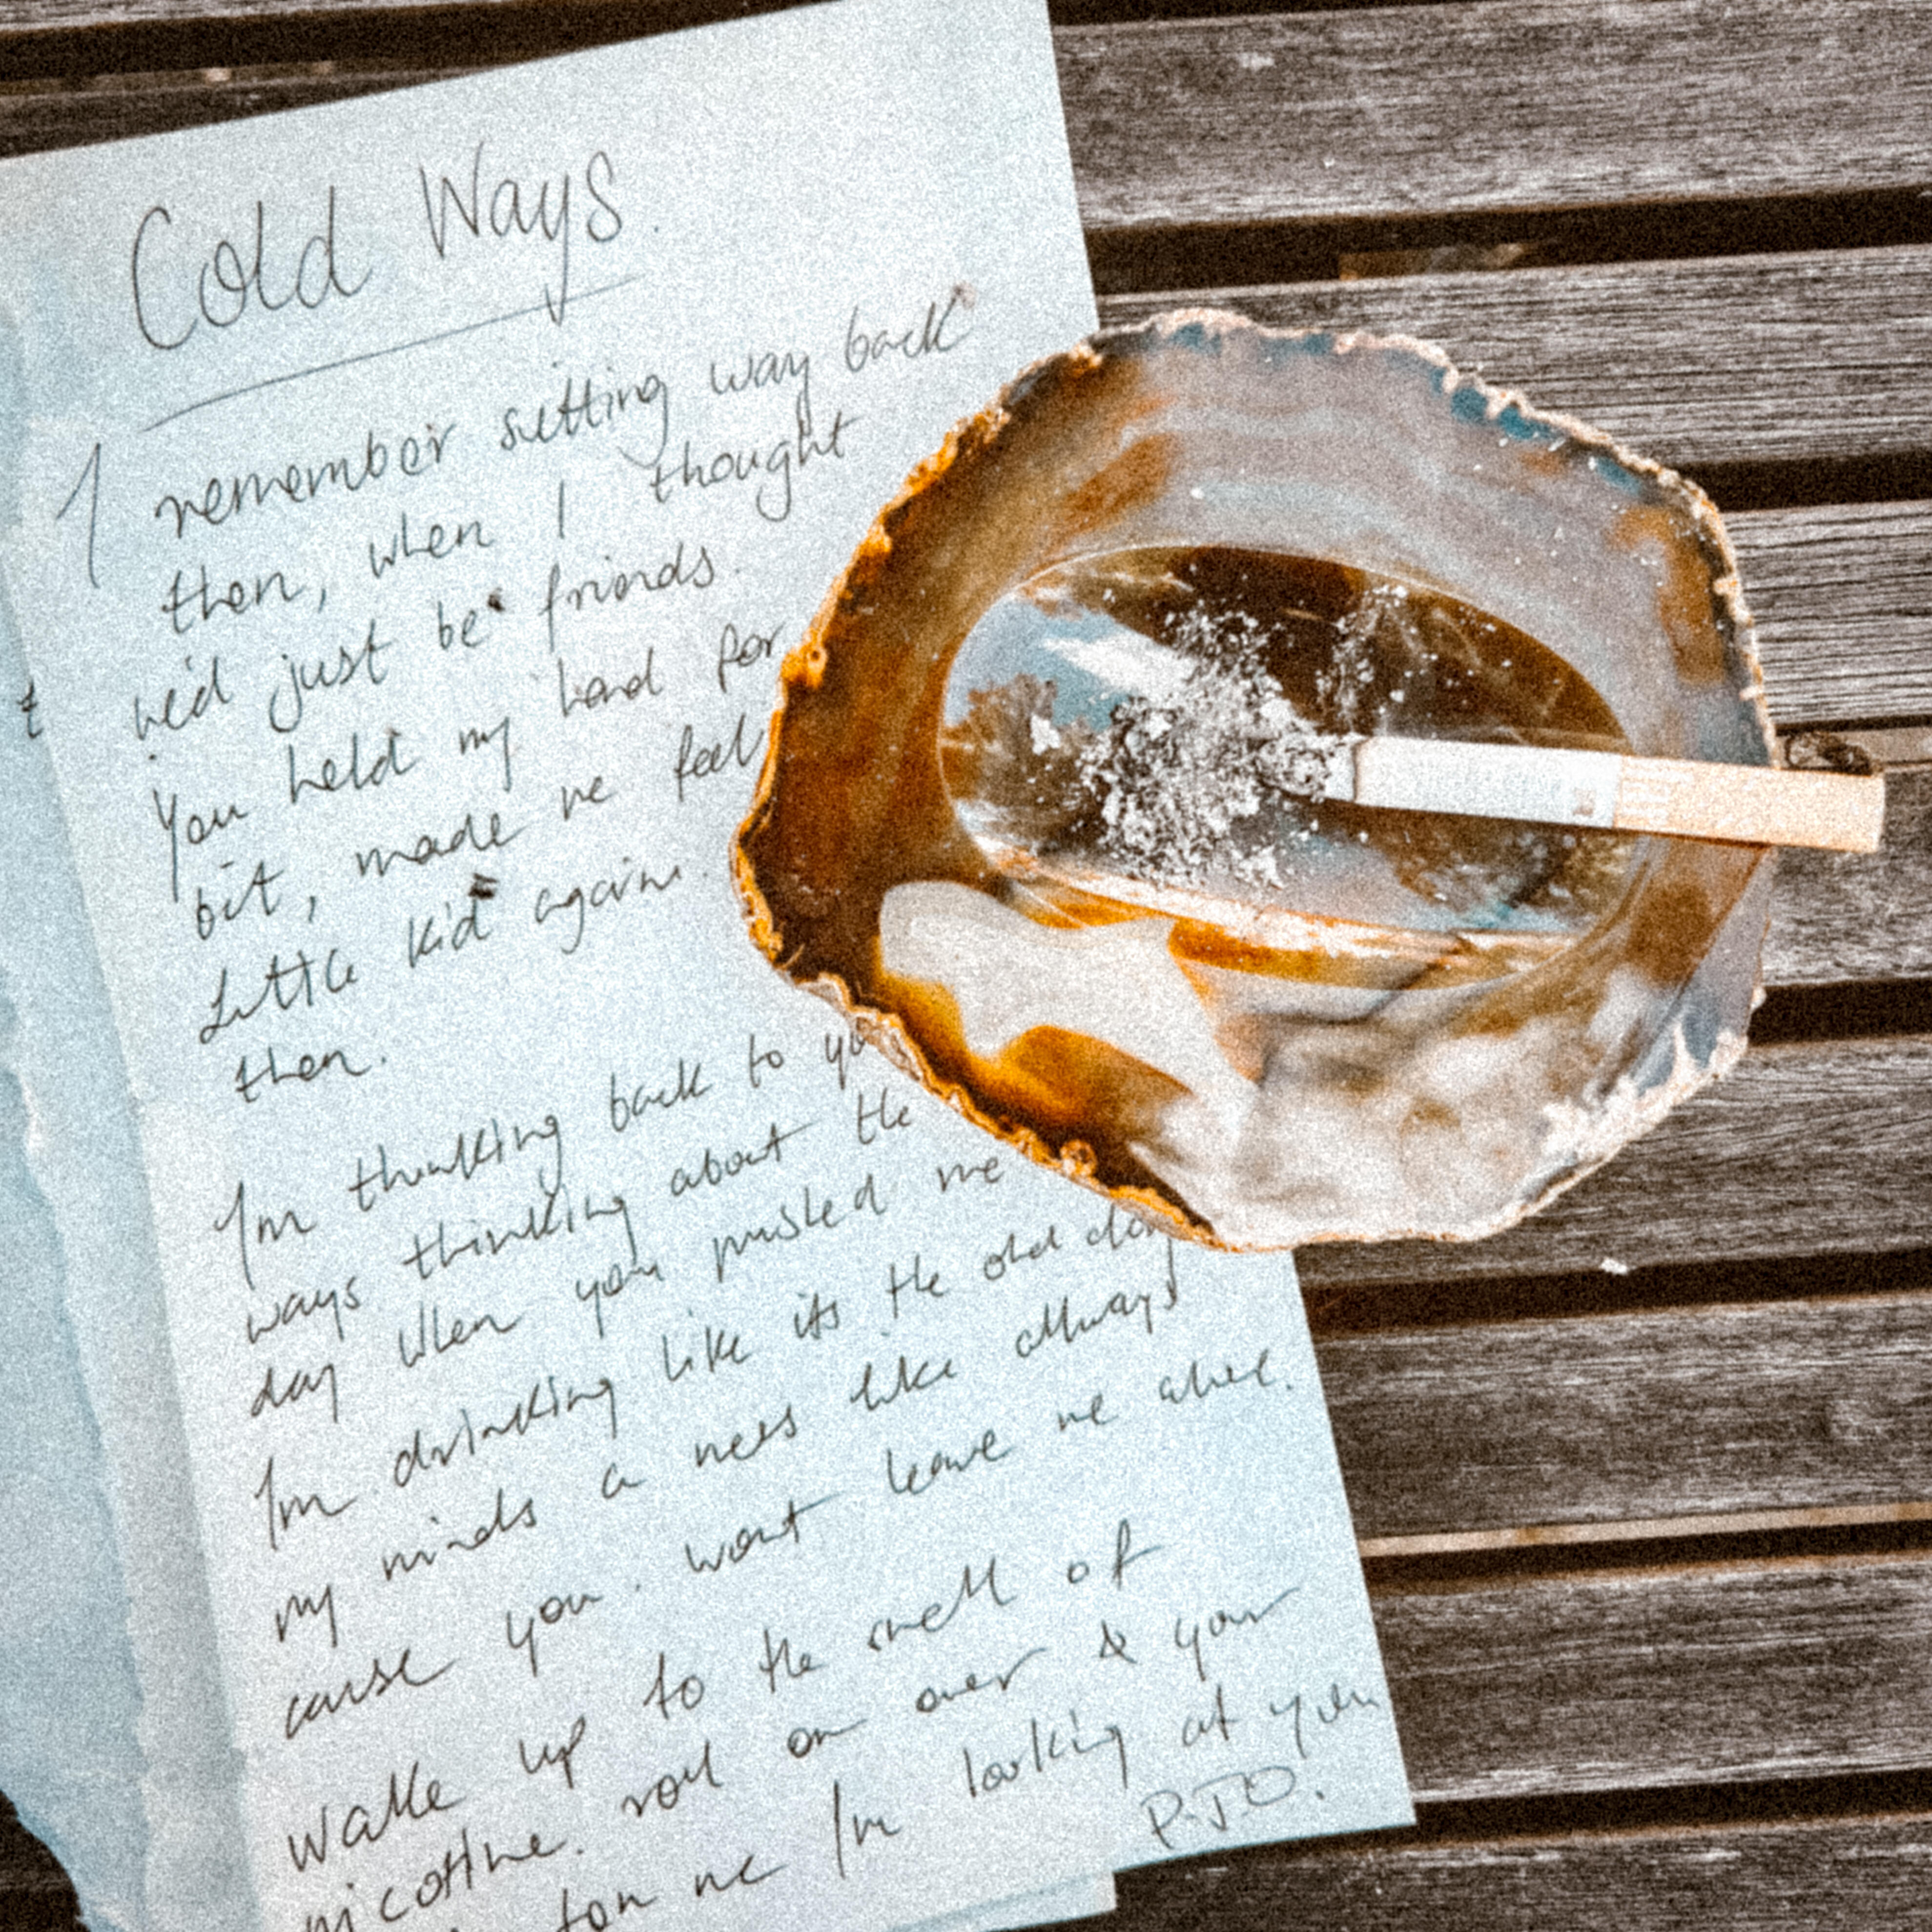 Cold Ways.
I remember sitting way back
then, when I thought
we'd just be friends.
You held my hand for
bit, made me feel
Little kid again.
then.
Im thinking back to
ways thinking about the
day when you pushed me
Im drinking like its the old
my minds a mess like always
cause you. wont leave me
Wake up to the smell of
nicotine. roll on over & your
me Im looking at you
P.T.O.